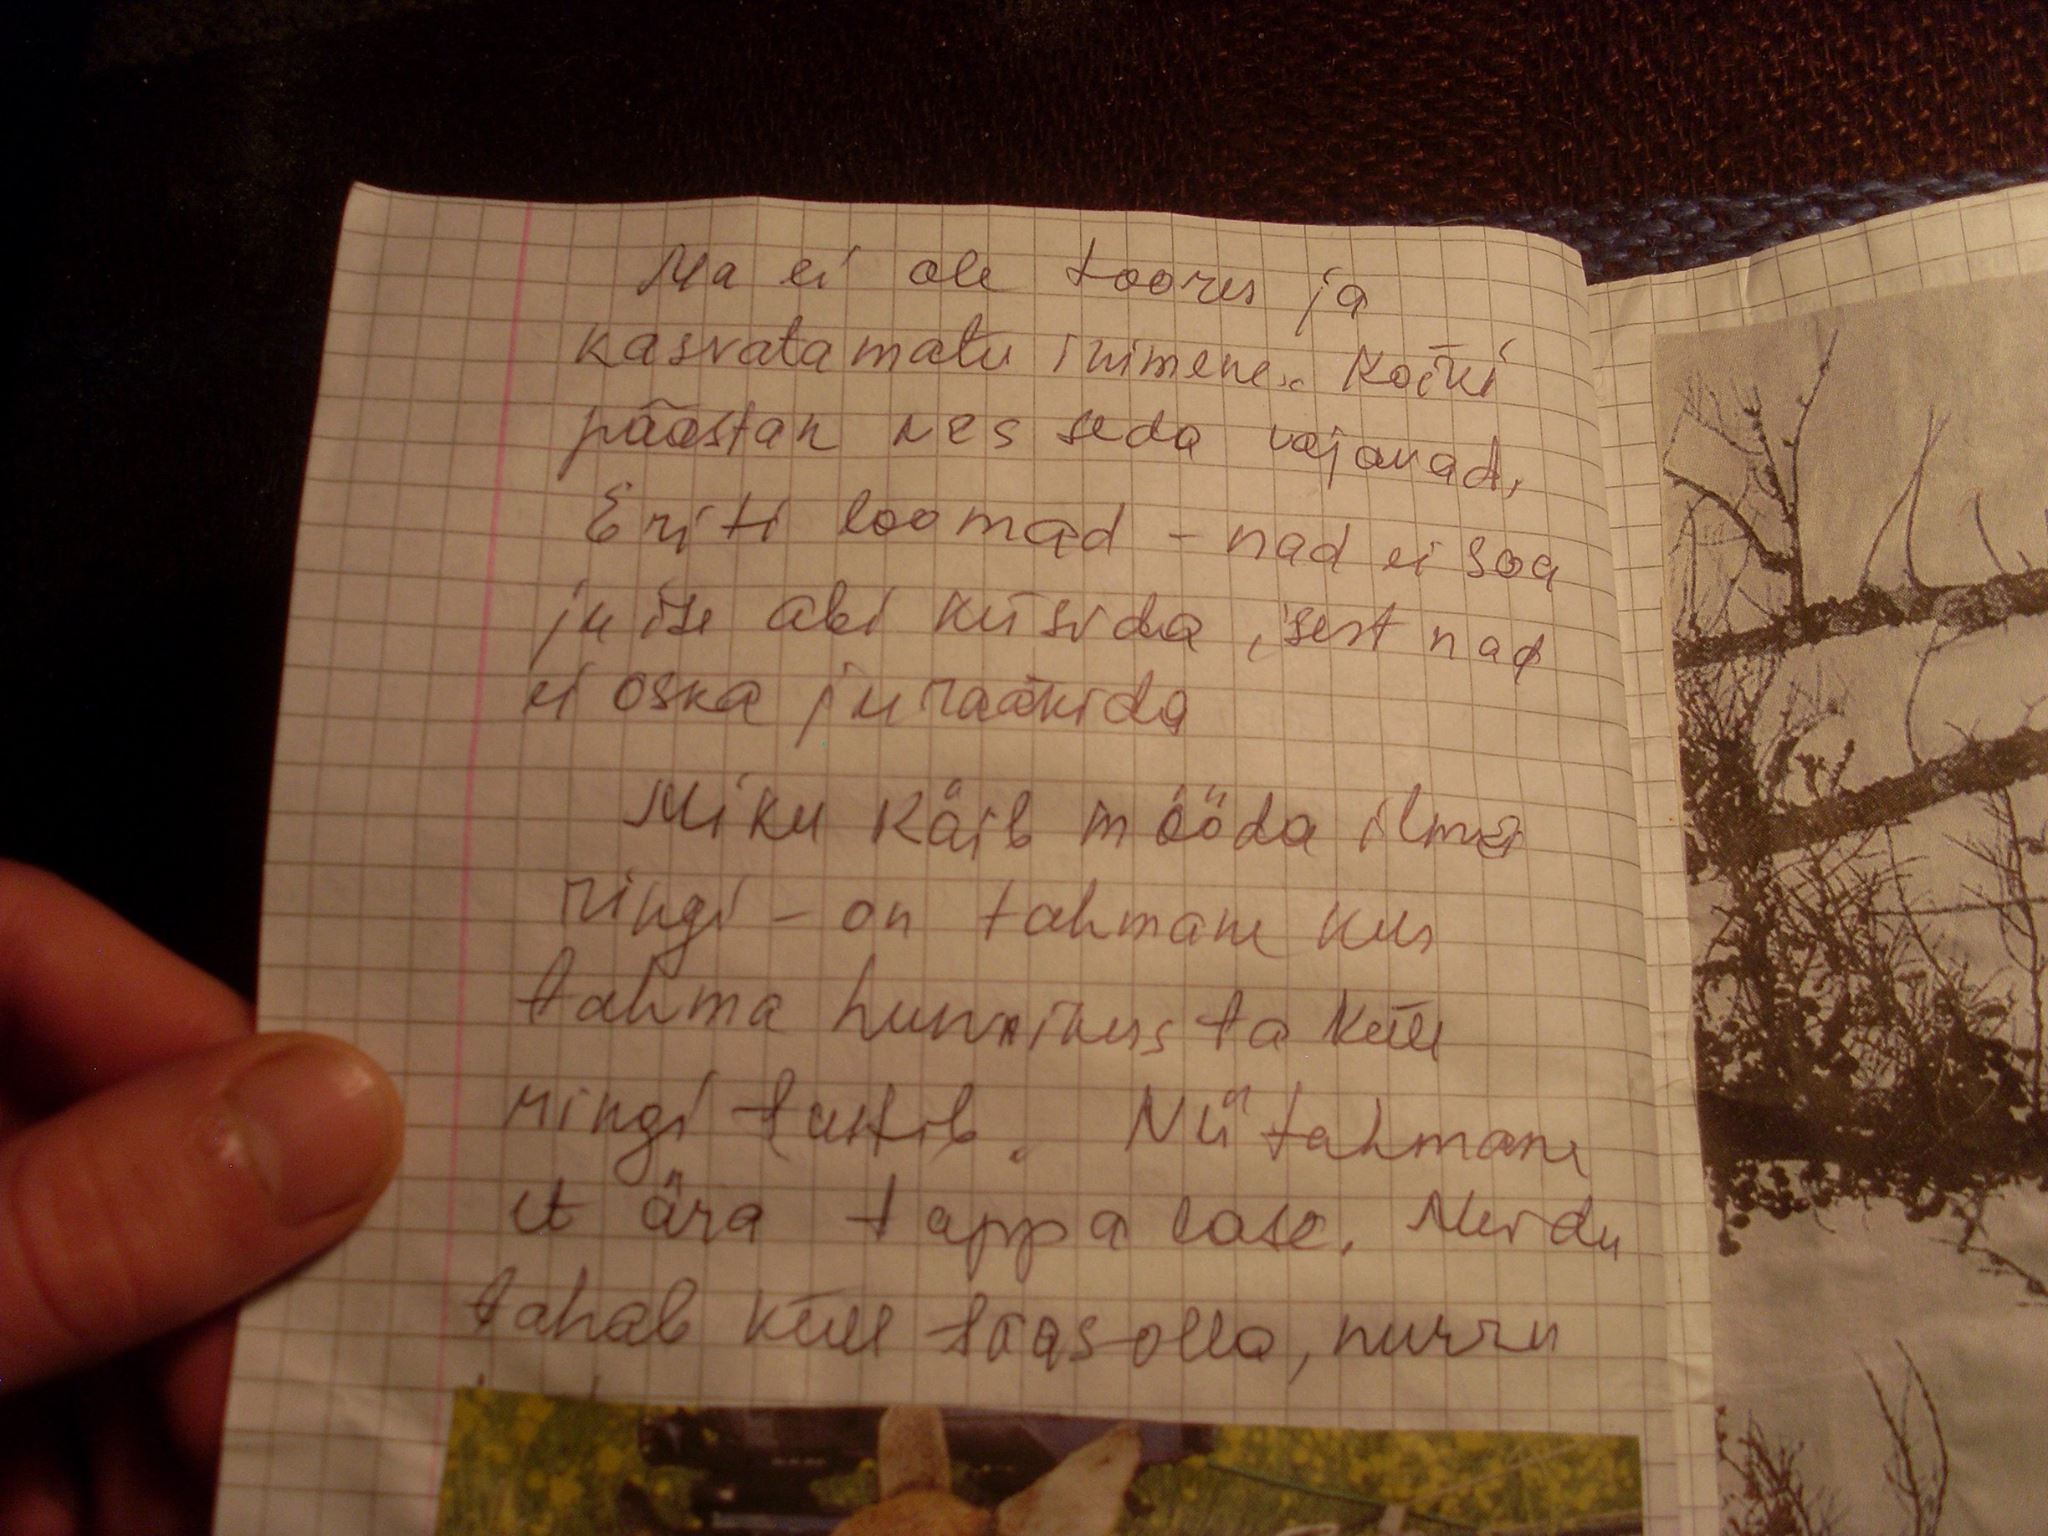 Ma ei ole toores ja
kasvatamatu inimene. Kõiki
päästan kes seda vajavad.
Eriti loomad - nad ei saa
ju ise abi küsida, sest nad
ei oska ju rääkida
Miku käib mööda ilma
ringi - on tahmane kus
tahma hunnikuss ta küll
ringi tustib. Nii tahmane
et ära tappa lase. Nerdu
tahab küll sääs olla, nurru